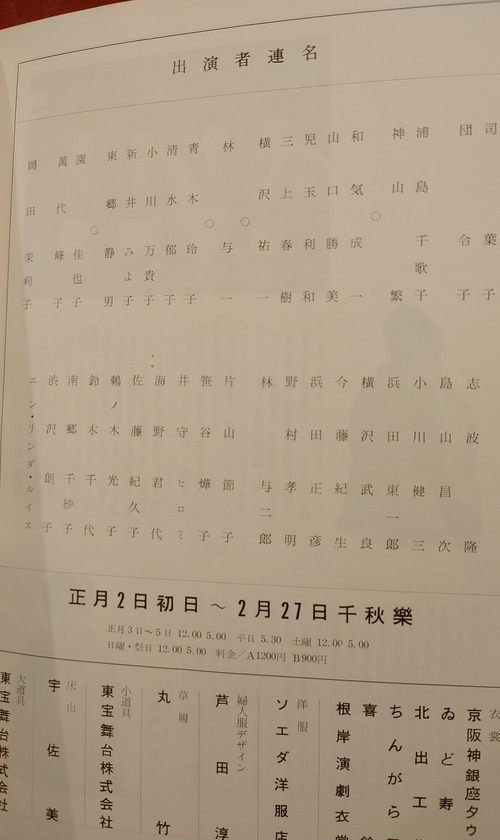 出演者連名
司葉子
団令子
浦島千歌子
神山繁
○
和気成一
山口勝美
児玉利和
三上春樹
横沢祐一
○
林与一
○
青木玲子
清水郁子
小川万貴子
新井みよ子
東郷静男
○
園佳也子
萬代峰子
岡田茉莉子
志波隆
島山昌次
小川健三
浜田東一郎
横沢武良
今藤紀生
浜田正彦
野村孝明
林与二郎
片山節子
笹谷燁子
井守ヒロミ
海野君代
佐藤紀久子
鵜ノ木光子
鈴木千代
南郷千紗子
渋沢朗子
エン・リンダ・ルイス
正月2日初日～2月27日千秋樂
正月3日～5日 12.00 5.00 平日 5.30 土曜 12.00 5.00
日曜・祭日 12.00 5.00 料金／A1200円 B900円
衣裳
京阪神銀座タウ
ゐど寿
北出工
ちんがら
喜
根岸演劇衣裳
洋服
ソエダ洋服店
婦人服デザイン
芦田淳
草履
丸竹
小道具
東宝舞台株式会社
床山
宇佐美
大道具
東宝舞台株式会社